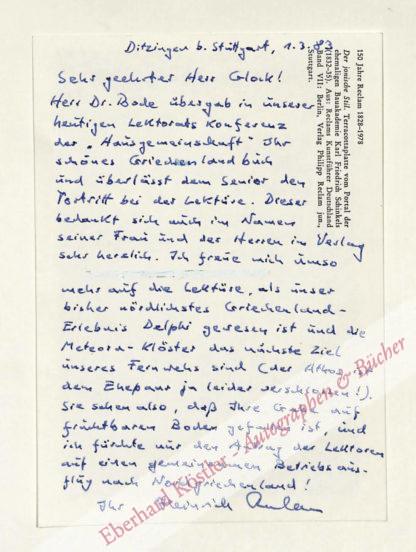 Ditzingen b. Stuttgart, 1.3.
Sehr geehrter Herr Glock!
Herr Dr. Bode übergab in unserer
heutigen Lektorats Konferenz
der „Hausgemeinschaft" Ihr
schönes Griechenland buch
und überlässt dem Senior den
Vortritt bei der Lektüre. Dieser
bedankt sich auch im Namen
seiner Frau und der Herren im Verlag
sehr herzlich. Ich freue mich umso
mehr auf die Lektüre, als unser
bisher nördlichstes Griechenland-
Erlebnis Delphi gewesen ist und die
Meteora-Klöster das nächste Ziel
unseres Fernwehs sind (der Athos ist
dem Ehepaar ja leider verschlossen!).
Sie sehen also, daß Ihre Gabe auf
fruchtbaren Boden gefallen ist, und
ich fürchte nur den Antrag der Lektoren
auf einen gemeinsamen Betriebsaus-
flug nach Nordgriechenland!
Ihr Heinrich
150 Jahre Reclam 1828-1978
Der jonische Stil. Terracottaplatte vom Portal der
ehemaligen Bauakademie Karl Friedrich Schinkels
(1832-35). Aus: Reclams Kunstführer Deutschland
Band VII: Berlin, Verlag Philipp Reclam jun.,
Stuttgart.
Eberhard Köstler - Autographen & Bücher